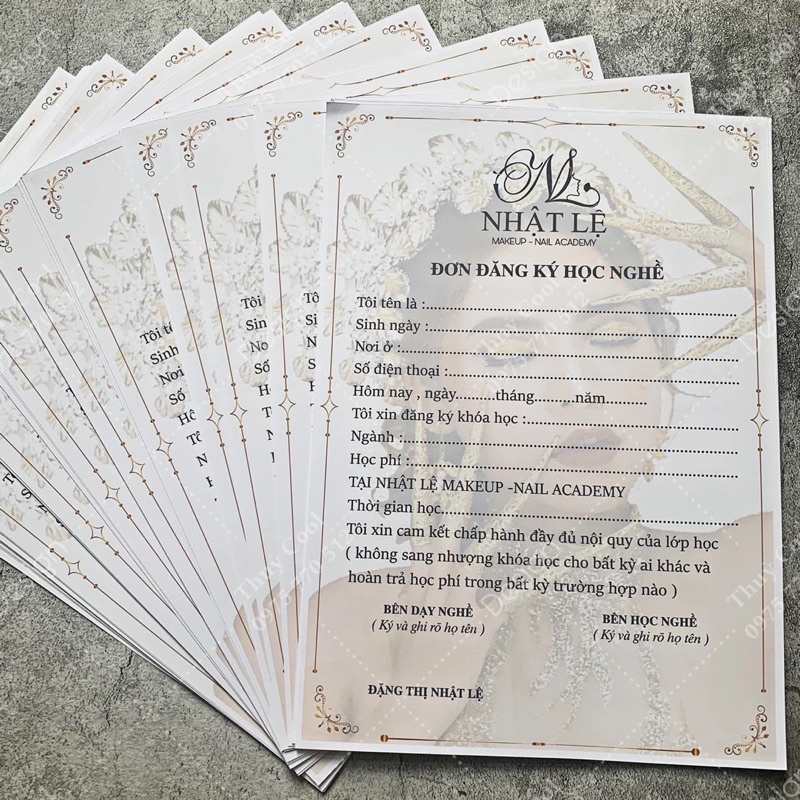 NL
NHẬT LỆ
MAKEUP - NAIL ACADEMY
ĐƠN ĐĂNG KÝ HỌC NGHỀ
Tôi tên là :..........................................................
Sinh ngày :..........................................................
Nơi ở :..........................................................
Số điện thoại :..........................................................
Hôm nay , ngày..........tháng..........năm..........
Tôi xin đăng ký khóa học :........................................
Ngành :..........................................................
Học phí :..........................................................
TẠI NHẬT LỆ MAKEUP -NAIL ACADEMY
Thời gian học..........................................................
Tôi xin cam kết chấp hành đầy đủ nội quy của lớp học
( không sang nhượng khóa học cho bất kỳ ai khác và
hoàn trả học phí trong bất kỳ trường hợp nào )
BÊN DẠY NGHỀ
( Ký và ghi rõ họ tên )
BÊN HỌC NGHỀ
( Ký và ghi rõ họ tên )
ĐẶNG THỊ NHẬT LỆ
Thuy Cool
0975 770 512
Design